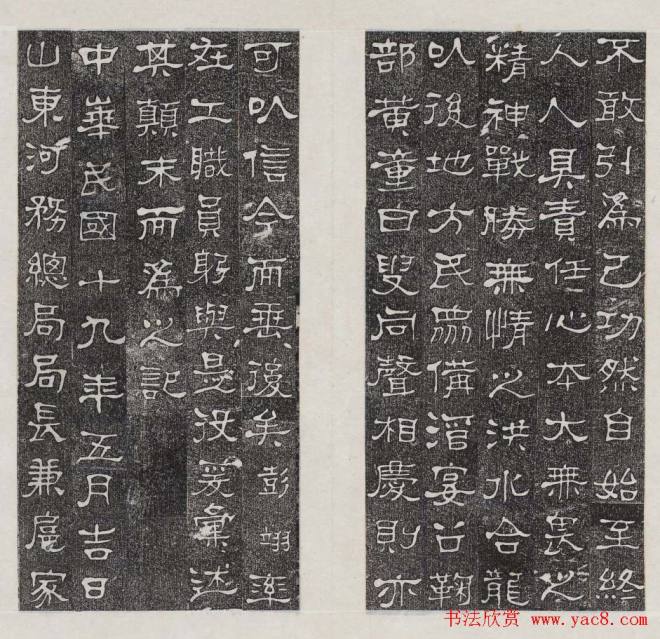 不敢引爲己功然自始至終
人人具責任心本大無畏之
精神戰勝無情之洪水合龍
以後地方民眾備酒宴召鞠
部黃童白叟同聲相慶則亦
可以信今而垂後矣彭翊率
在工職員躬與是役爰彙述
其顛末而爲之記
中華民國十九年五月吉日
山東河務總局局長兼扈家
书法欣赏 www.yac8.com